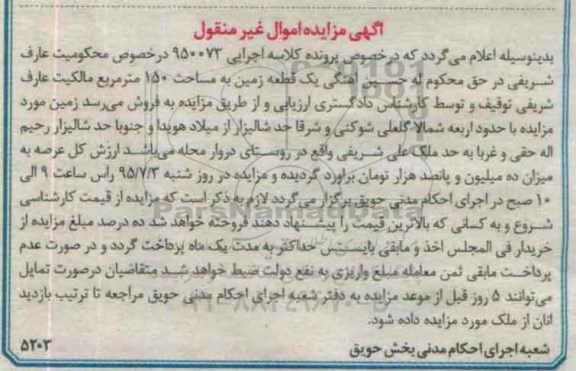 آگهی مزایده اموال غیر منقول
بدینوسیله اعلام می گردد که درخصوص پرونده کلاسه اجرایی ۹۵۰۰۷۳ درخصوص محکومیت عارف
شریفی در حق محکوم له حسین آهنگی یک قطعه زمین به مساحت ۱۵۰ مترمربع مالکیت عارف
شریفی توقیف و توسط کارشناس دادگستری ارزیابی و از طریق مزایده به فروش می‌رسد زمین مورد
مزایده با حدود اربعه شمالا گلعلی شوکتی و شرقا حد شالیزار از میلاد هویدا و جنوبا حد شالیزار رحیم
اله حقی و غربا به حد ملک علی شریفی واقع در روستای دروار محله می‌باشد ارزش کل عرصه به
میزان ده میلیون و پانصد هزار تومان براورد گردیده و مزایده در روز شنبه ۹۵/۷/۳ راس ساعت ۹ الی
۱۰ صبح در اجرای احکام مدنی حویق برگزار می‌گردد لازم به ذکر است که مزایده از قیمت کارشناسی
شروع و به کسانی که بالاترین قیمت را پیشنهاد دهند فروخته خواهد شد ده درصد مبلغ مزایده از
خریدار فی المجلس اخذ و مابقی بایستی حداکثر به مدت یک ماه پرداخت گردد و در صورت عدم
پرداخت مابقی ثمن معامله مبلغ واریزی به نفع دولت ضبط خواهد شد متقاضیان درصورت تمایل
می‌توانند ۵ روز قبل از موعد مزایده به دفتر شعبه اجرای احکام مدنی حویق مراجعه تا ترتیب بازدید
انان از ملک مورد مزایده داده شود.
شعبه اجرای احکام مدنی بخش حویق
۵۲۰۳
ParsNamadData